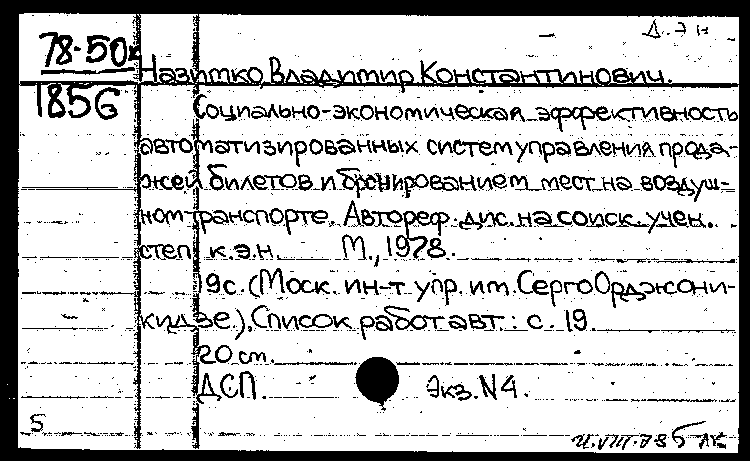 Д. Э Н
78-50
1856
Назимко, Владимир Константинович.
Социально-экономическая эффективность
автоматизированных систем управления прода-
жей билетов и бронированием мест на воздуш-
ном транспорте. Автореф. дис. на соиск. учен.
степ. к.э.н. М., 1978.
19с. (Моск. ин-т упр. им. Серго Орджони-
кидзе). Список работ авт.: с. 19.
20 см.
ДСП. Экз. N4.
5